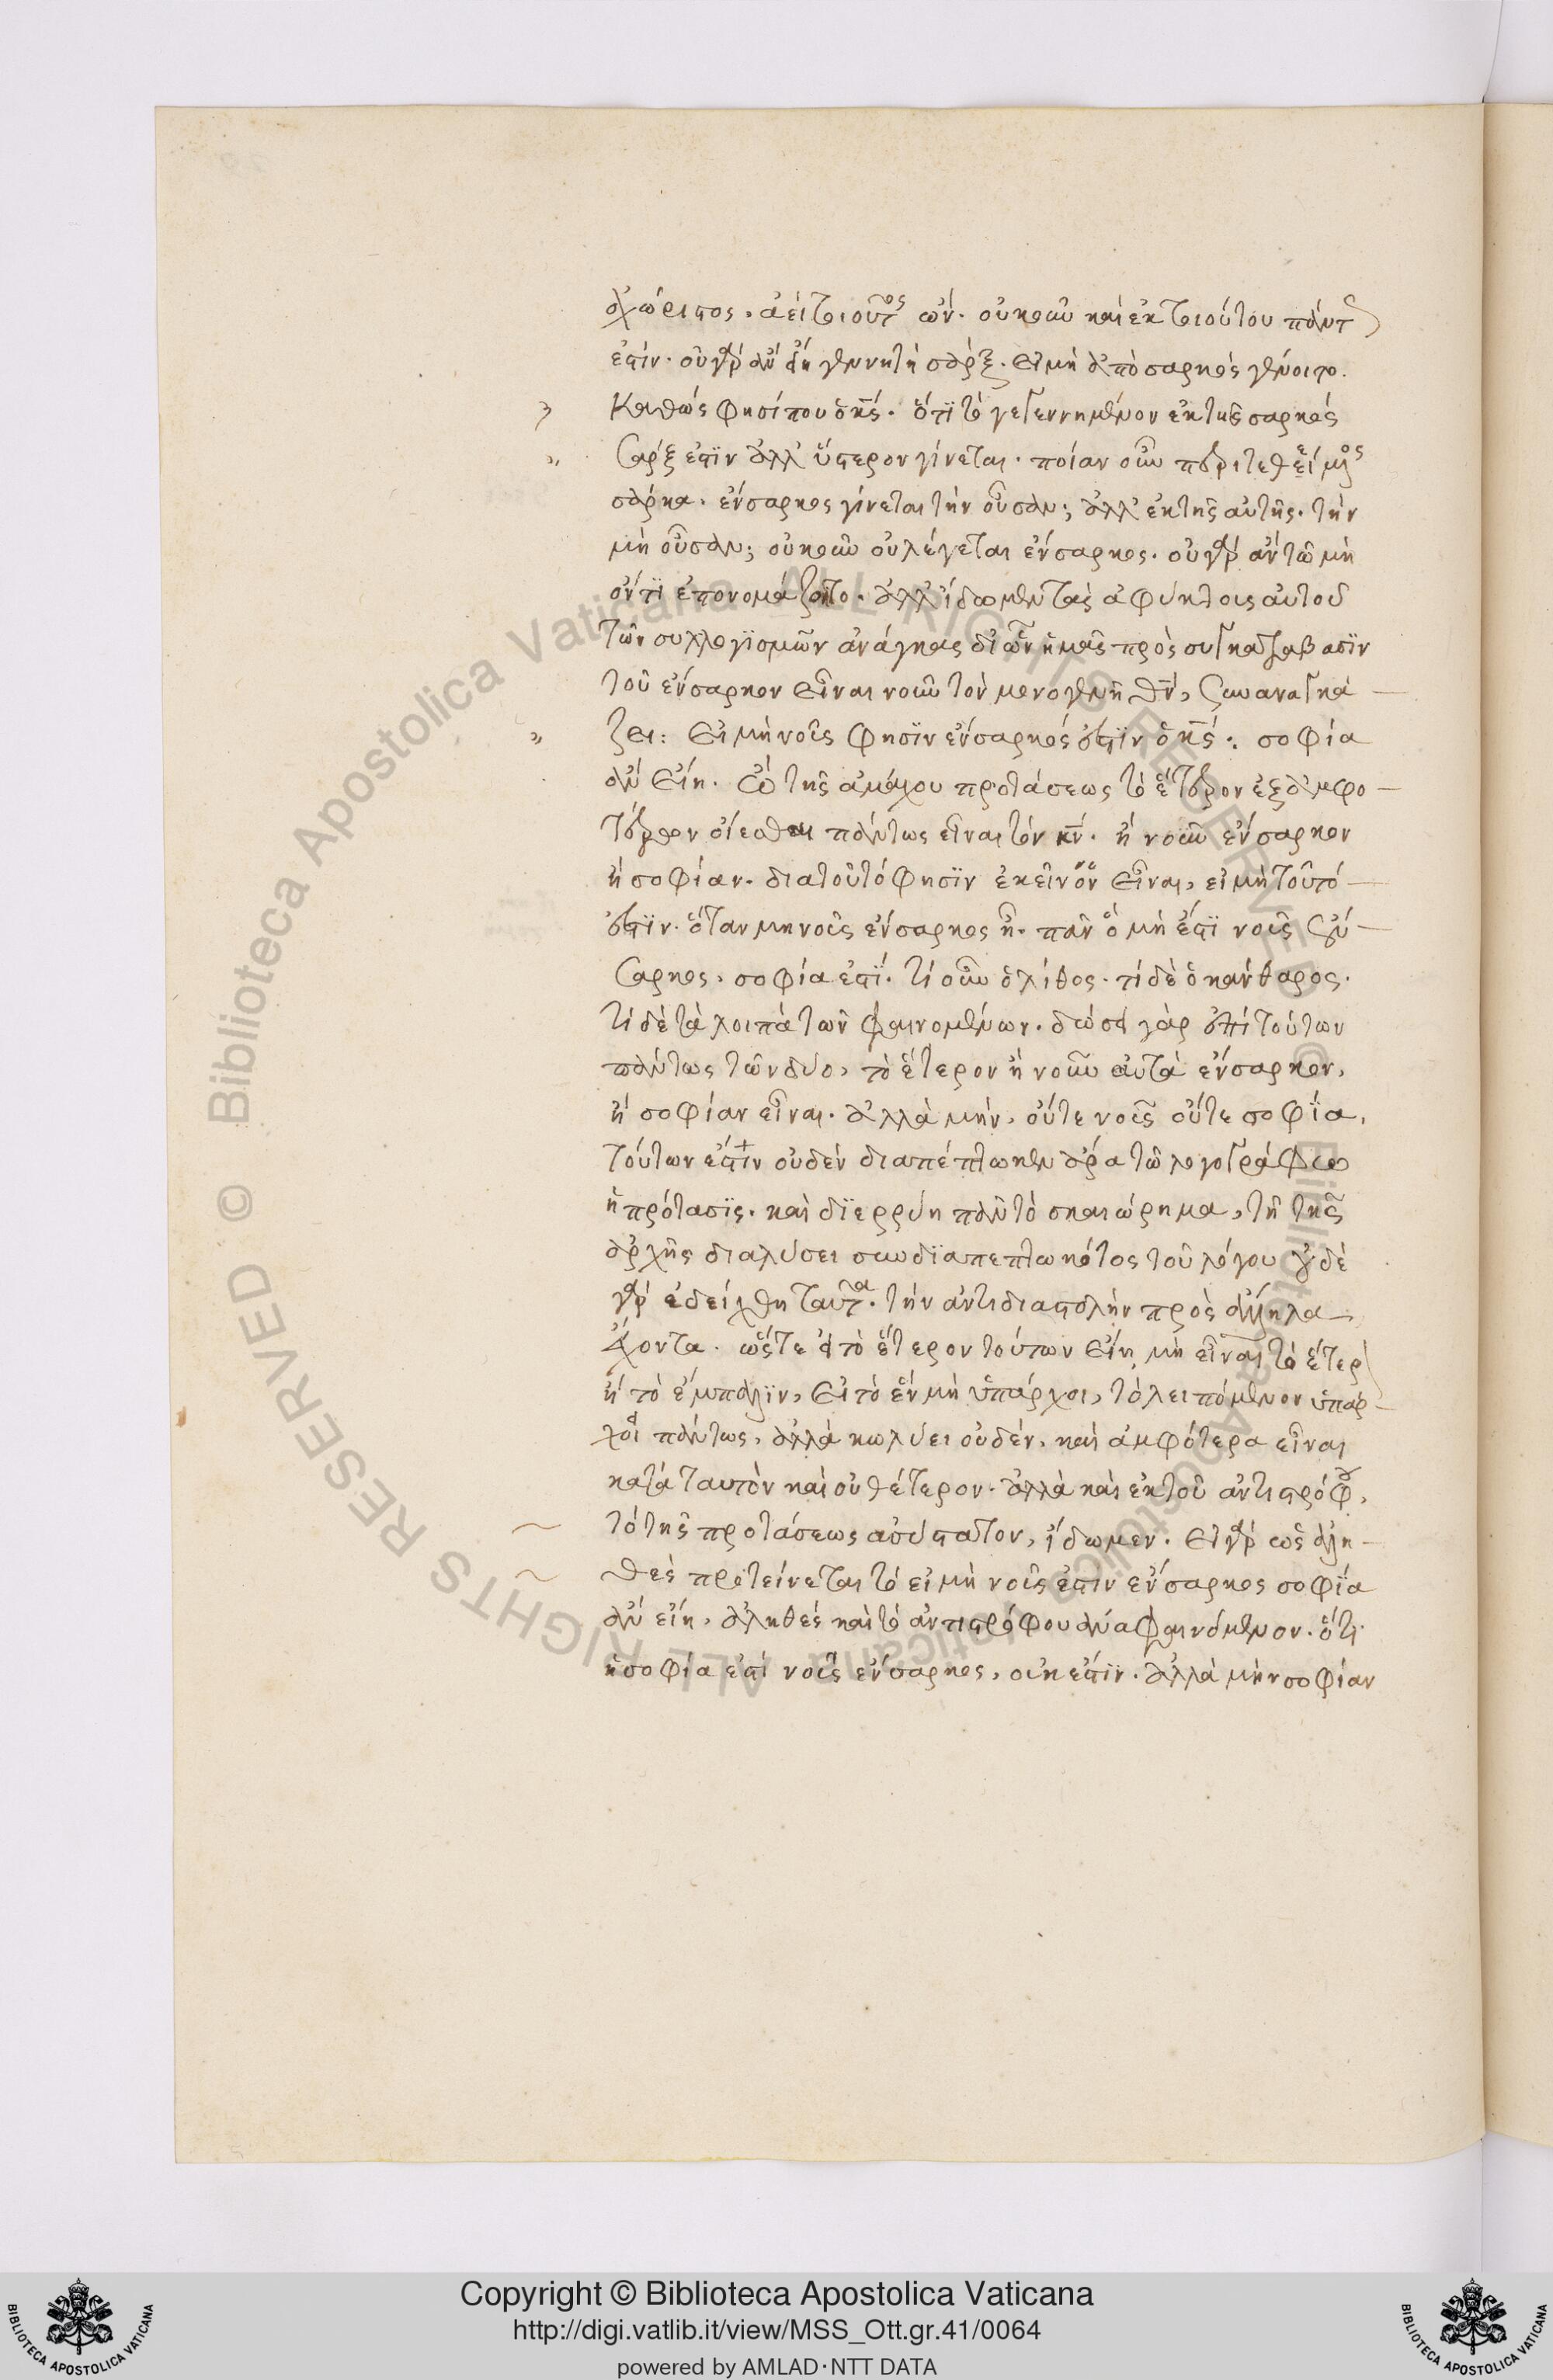 ἀχώριστος. ἀεὶ τοιοῦτος ὤν. οὐκοῦν καὶ ἐκ τοιούτου πάντ
ἐστίν. οὐ γὰρ ἂν εἴη γεννητὴ σάρξ. εἰ μὴ ἀπὸ σαρκὸς γένοιτο.
Καθώς φησί που ὁ κς. ὅτι τὸ γεγεννημένον ἐκ τῆς σαρκός
σάρξ ἐστιν ἀλλ' ὕστερον γίνεται. ποίαν οὖν
σάρκα. ἔνσαρκος γίνεται τὴν οὖσαν; ἀλλ' ἐκ τῆς αὐτῆς. τὴν
μὴ οὖσαν; οὐκοῦν οὐ λέγεται ἔνσαρκος. οὐ γὰρ ἂν τῶ μὴ
ὄντι ἐπονομάζοιτο. ἀλλ' ἴδωμεν τὰς ἀφύκτοις αὐτοῦ
τῶν συλλογισμῶν ἀνάγκας δι' ὧν ἡμᾶς πρὸς συγκατάβασιν
τοῦ ἔνσαρκον εἶναι νοῦν τὸν μονογενῆ θν, συναναγκά
ζει: εἰ μὴ νοῦς φησὶν ἔνσαρκός ἐστιν ὁ κς. σοφία
ἂν εἴη. ὢ τῆς ἀμάχου προτάσεως τὸ ἕτερον ἐξ ἀμφο
τέρων οἴεσθαι πάντως εἶναι τὸν κν. ἢ νοῦν ἔνσαρκον
ἢ σοφίαν. διατοῦτό φησιν ἐκεῖνον εἶναι, εἰ μὴ τοῦτό
ἐστιν. ὅταν μὴ νοῦς ἔνσαρκος ἦ. πᾶν ὃ μὴ ἔστι νοῦς ἔν
σαρκος. σοφία ἐστί. τί οὖν ὁ λίθος. τί δὲ ὁ κάνθαρος.
τί δὲ τὰ λοιπὰ τῶν φαινομένων. δώσει γὰρ ἐπὶ τούτων
πάντως τῶν δύο, τὸ ἕτερον ἢ νοῦν αὐτὰ ἔνσαρκον,
ἢ σοφίαν εἶναι. ἀλλὰ μὴν, οὔτε νοῦς οὔτε σοφία,
τούτων ἐστὶν οὐδὲν διαπέπτωκεν ἄρα τῶ λογογράφω
ἡ πρότασις. καὶ διερρύη πᾶν τὸ σκαιώρημα, τῆ τῆς
ἀρχῆς διαλύσει συνδιαπεπτωκότος τοῦ λόγου οὐδὲ
γὰρ ἐδείχθη ταῦτα. τὴν ἀντιδιαστολὴν πρὸς ἄλληλα
ἔχοντα. ὥστε εἰ τὸ ἕτερον τούτων εἴη μὴ εἶναι τὸ ἕτερ
ἢ τὸ ἔμπαλιν, εἰ τὸ ἓν μὴ ὑπάρχοι, τὸ λειπόμενον ὑπάρ
χοι πάντως, ἀλλὰ κωλύει οὐδέν, καὶ ἀμφότερα εἶναι
κατὰ ταυτὸν καὶ οὐθέτερον. ἀλλὰ καὶ ἐκ τοῦ ἀντιστρόφου,
τὸ τῆς προτάσεως ἀσύστατον, ἴδωμεν. εἰ γὰρ ὡς ἀλη
θὲς προτείνεται τὸ εἰ μὴ νοῦς ἐστὶν ἔνσαρκος σοφία
ἂν εἴη, ἀληθὲς καὶ τὸ ἀντιστρόφου ἀναφαινόμενον. ὅτι
ἡ σοφία ἐστὶ νοῦς ἔνσαρκος, οὐκ ἔστιν. ἀλλὰ μὴν σοφίαν
© Biblioteca Apostolica Vaticana ALL RIGHTS RESERVED © Biblioteca Apostolica Vaticana ALL RIGHTS RESERVED
Copyright © Biblioteca Apostolica Vaticana
http://digi.vatlib.it/view/MSS_Ott.gr.41/0064
powered by AMLAD·NTT DATA
BIBLIOTECA APOSTOLICA VATICANA
BIBLIOTECA APOSTOLICA VATICANA